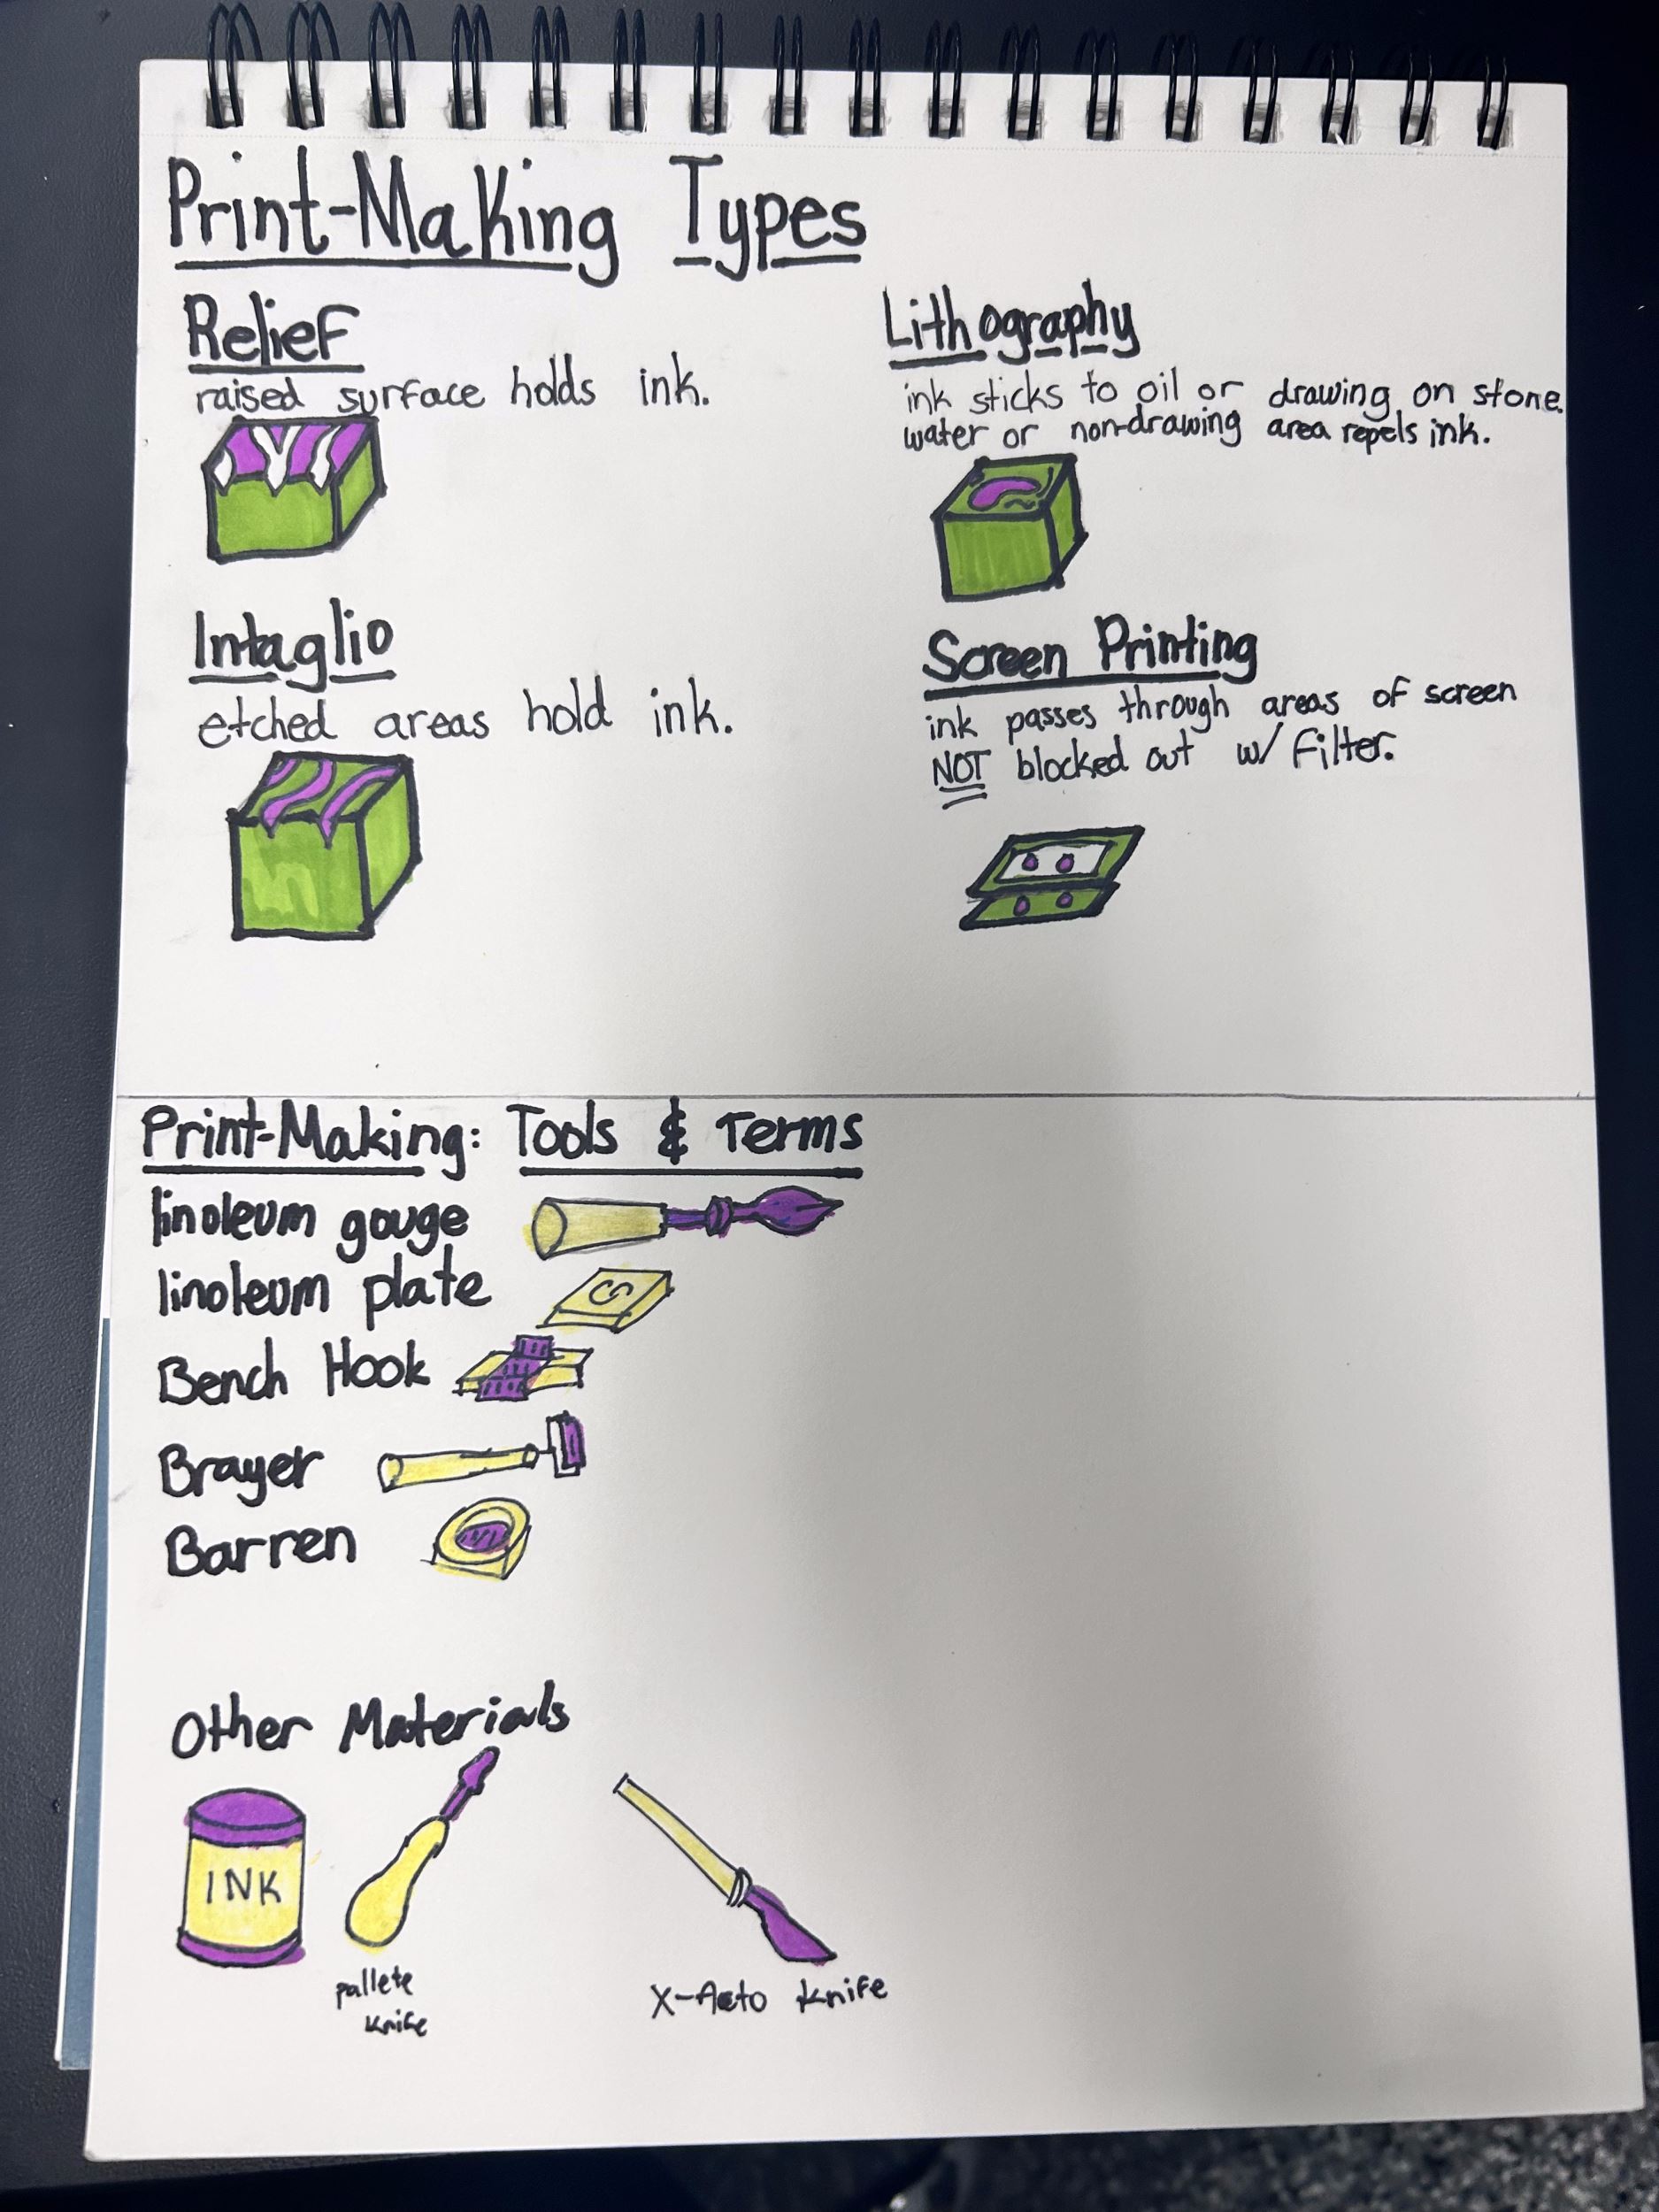 Print-Making Types
Relief
raised surface holds ink.
Intaglio
etched areas hold ink.
Lithography
ink sticks to oil or drawing on stone.
water or non-drawing area repels ink.
Screen Printing
ink passes through areas of screen
NOT blocked out w/ filter.
Print-Making: Tools & Terms
linoleum gouge
linoleum plate
Bench Hook
Brayer
Barren
Other Materials
INK
pallete
knife
X-Acto knife